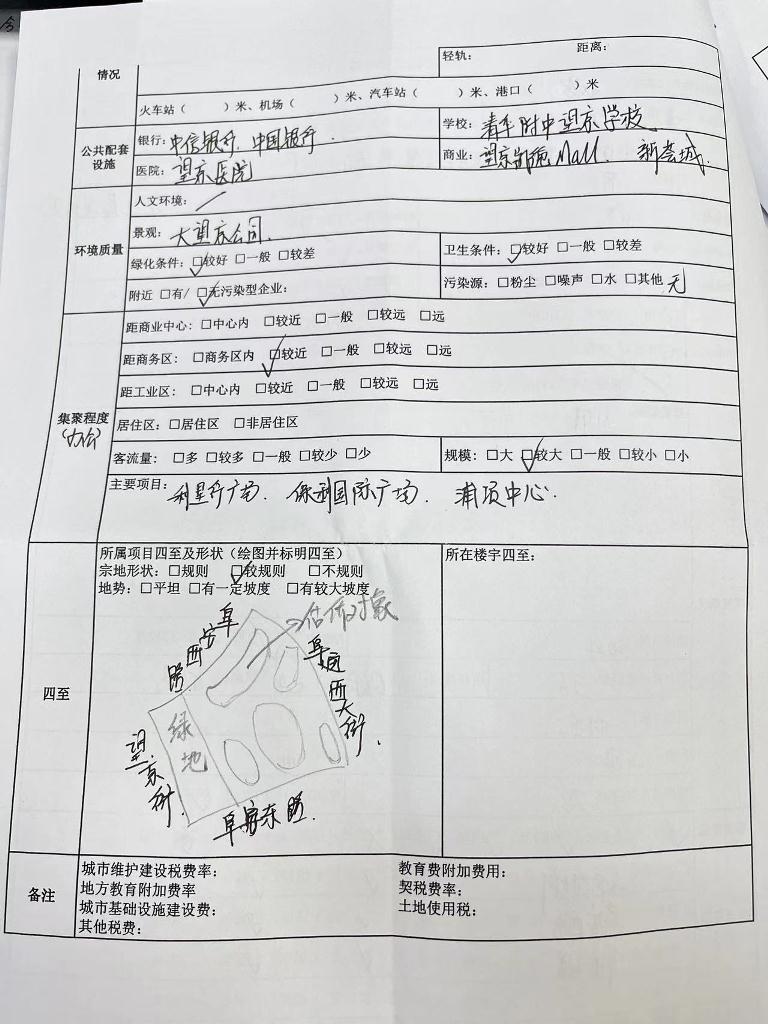 轻轨： 距离：
情况
火车站（ ）米、机场（ ）米、汽车站（ ）米、港口（ ）米
公共配套设施
银行：中信银行、中国银行. 学校：青年附中望京学校
医院：望京医院 商业：望京凯德Mall、新荟城.
环境质量
人文环境：／
景观：大望京公园.
绿化条件：☑较好 □一般 □较差 卫生条件：☑较好 □一般 □较差
附近 □有/ ☑无污染型企业： 污染源：□粉尘 □噪声 □水 □其他 无
集聚程度
（办公）
距商业中心：□中心内 □较近 □一般 □较远 □远
距商务区：□商务区内 ☑较近 □一般 □较远 □远
距工业区：□中心内 □较近 □一般 □较远 □远
居住区：□居住区 □非居住区
客流量：□多 □较多 □一般 □较少 □少 规模：□大 ☑较大 □一般 □较小 □小
主要项目：利星行广场、保利国际广场、浦项中心.
四至
所属项目四至及形状（绘图并标明四至） 所在楼宇四至：
宗地形状：□规则 ☑较规则 □不规则
地势：□平坦 □有一定坡度 □有较大坡度
估价对象
阜安西路
阜通西大街.
绿地
望京街.
阜安东路.
备注
城市维护建设税费率： 教育费附加费用：
地方教育附加费率 契税费率：
城市基础设施建设费： 土地使用税：
其他税费：